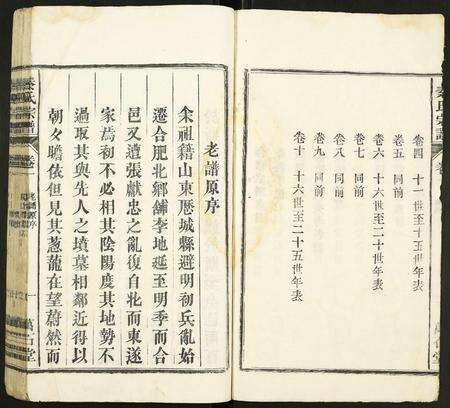 卷四 十一世至十五世年表
卷五 同前
卷六 十六世至二十世年表
卷七 同前
卷八 同前
卷九 同前
卷十 十六世至二十五世年表
老譜原序
余祖籍山東歷城縣避明初兵亂始
遷合肥北鄉舖李地延至明季而合
邑又遭張獻忠之亂復自北而東遂
家焉初不必相其陰陽度其地勢不
過取其與先人之墳墓相鄰近得以
朝々瞻依但見其葱蘢在望蔚然而
氏宗譜
卷
老譜原序
一
萬石堂